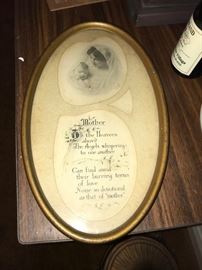 Mother
In the Heavens
above
The Angels whispering
to one another
Can find amid
their burning terms
of love
None so devotional
as that of "mother"